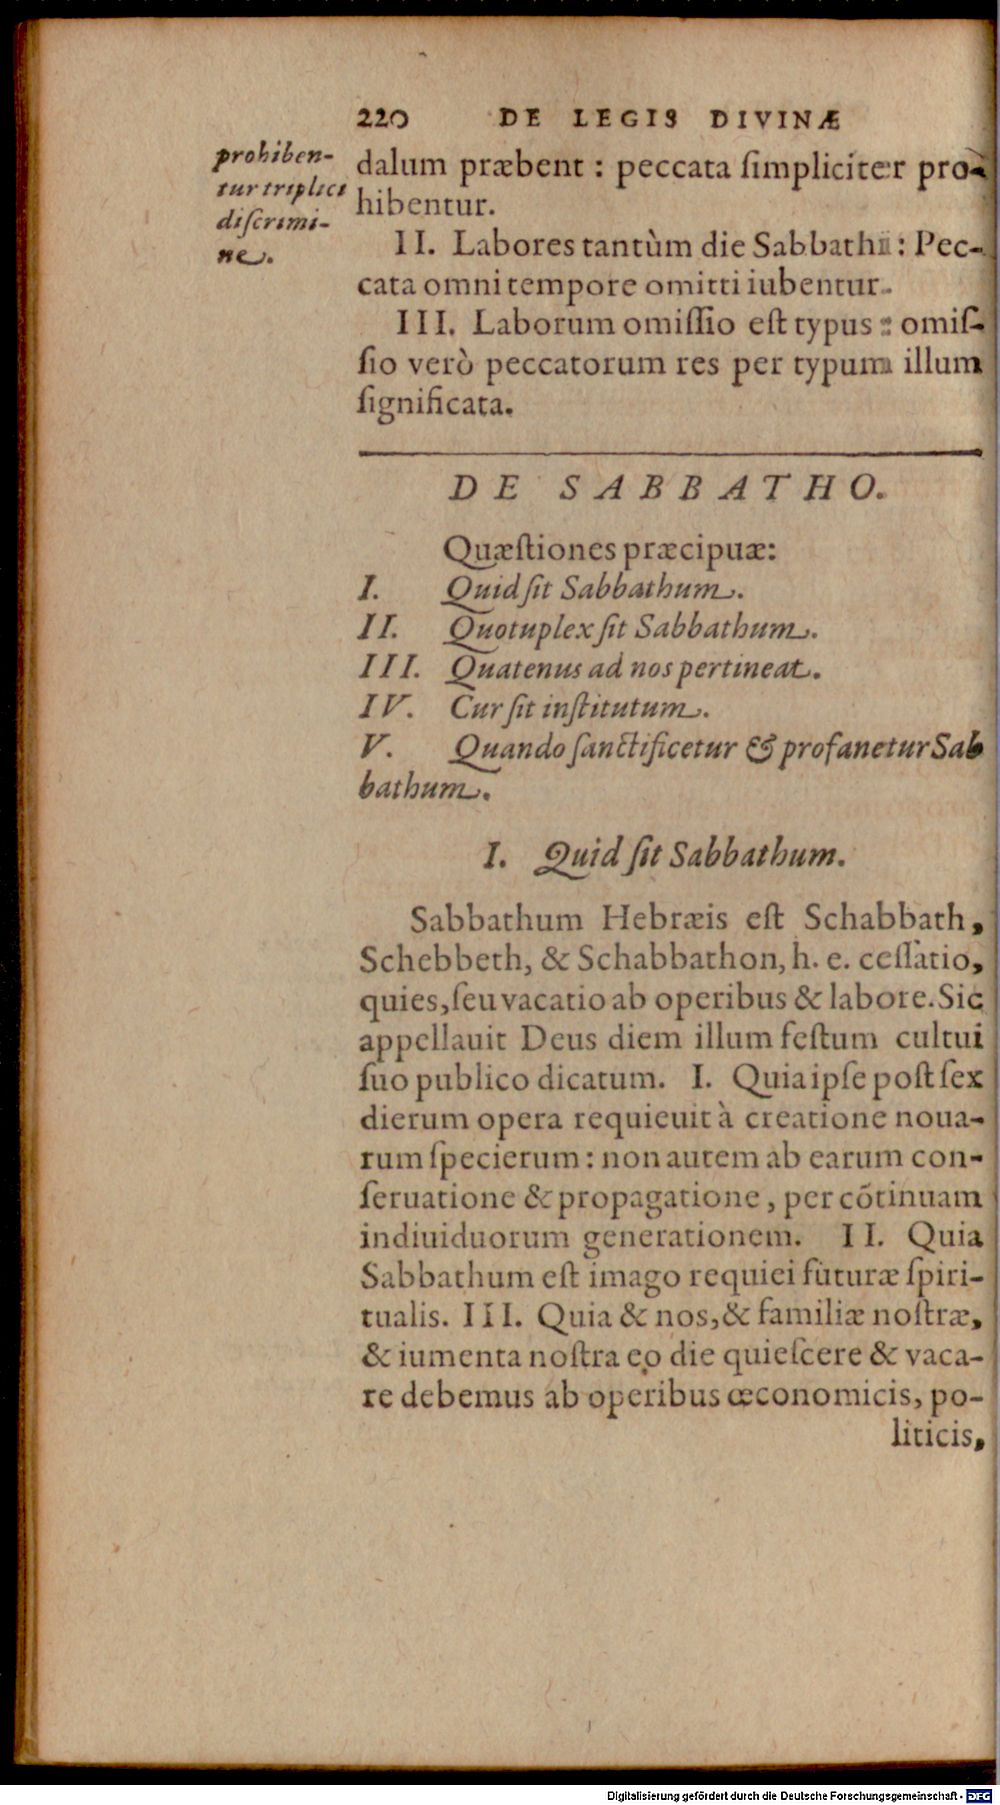 220 DE LEGIS DIVINÆ
prohiben-
tur triplici
diſcrimi-
ne.
dalum præbent : peccata ſimpliciter pro-
hibentur.
II. Labores tantùm die Sabbathi : Pec-
cata omni tempore omitti iubentur.
III. Laborum omiſſio eſt typus : omiſ-
ſio verò peccatorum res per typum illum
ſignificata.
DE SABBATHO.
Quæſtiones præcipuæ:
I. Quid ſit Sabbathum.
II. Quotuplex ſit Sabbathum.
III. Quatenus ad nos pertineat.
IV. Cur ſit inſtitutum.
V. Quando ſanctificetur & profanetur Sab
bathum.
I. Quid ſit Sabbathum.
Sabbathum Hebræis eſt Schabbath,
Schebbeth, & Schabbathon, h. e. ceſſatio,
quies, ſeu vacatio ab operibus & labore. Sic
appellauit Deus diem illum feſtum cultui
ſuo publico dicatum. I. Quia ipſe poſt ſex
dierum opera requieuit à creatione noua-
rum ſpecierum : non autem ab earum con-
ſeruatione & propagatione, per cõtinuam
indiuiduorum generationem. II. Quia
Sabbathum eſt imago requiei futuræ ſpiri-
tualis. III. Quia & nos, & familiæ noſtræ,
& iumenta noſtra eo die quieſcere & vaca-
re debemus ab operibus œconomicis, po-
liticis,
Digitalisierung gefördert durch die Deutsche Forschungsgemeinschaft - DFG